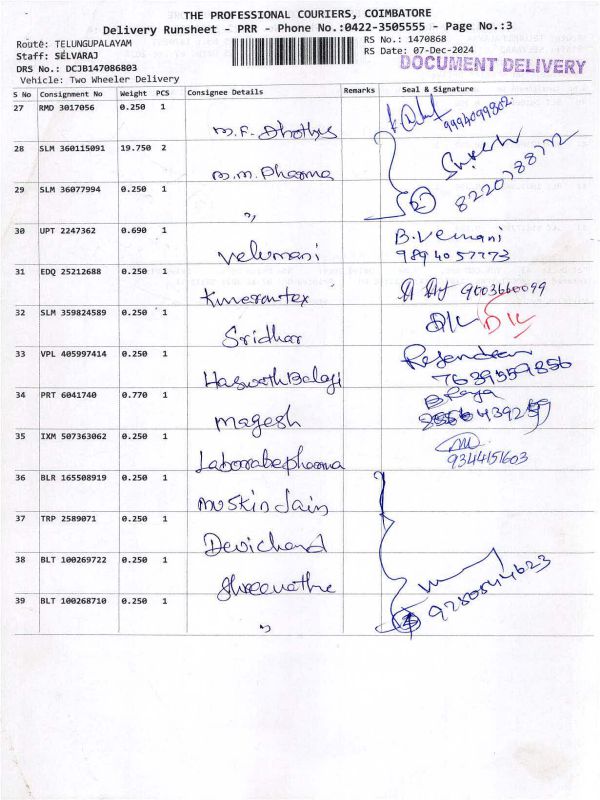 THE PROFESSIONAL COURIERS, COIMBATORE
Delivery Runsheet - PRR - Phone No.:0422-3505555 - Page No.:3
Route: TELUNGUPALAYAM RS No.: 1470868
Staff: SELVARAJ RS Date: 07-Dec-2024
DOCUMENT DELIVERY
DRS No.: DCJB147086803
Vehicle: Two Wheeler Delivery
S No Consignment No Weight PCS Consignee Details Remarks Seal & Signature
27 RMD 3017056 0.250 1
M.F. Dhothys
28 SLM 360115091 19.750 2
M.M. Pharma Suresh
29 SLM 36077994 0.250 1 8220788772
" 2
30 UPT 2247362 0.690 1 B.Vemani
Velumani 9894057773
31 EDQ 25212688 0.250 1
9003660099
32 SLM 359824589 0.250 1 D/L D/L
Sridhar
33 VPL 405997414 0.250 1 Rajendran
Haswath Balaji 7639559856
34 PRT 6041740 0.770 1
Magesh
35 IXM 507363062 0.250 1
Laborate pharma 9344151603
36 BLR 165508919 0.250 1
Muskin Jain
37 TRP 2589071 0.250 1
Devichand
38 BLT 100269722 0.250 1
39 BLT 100268710 0.250 1
"